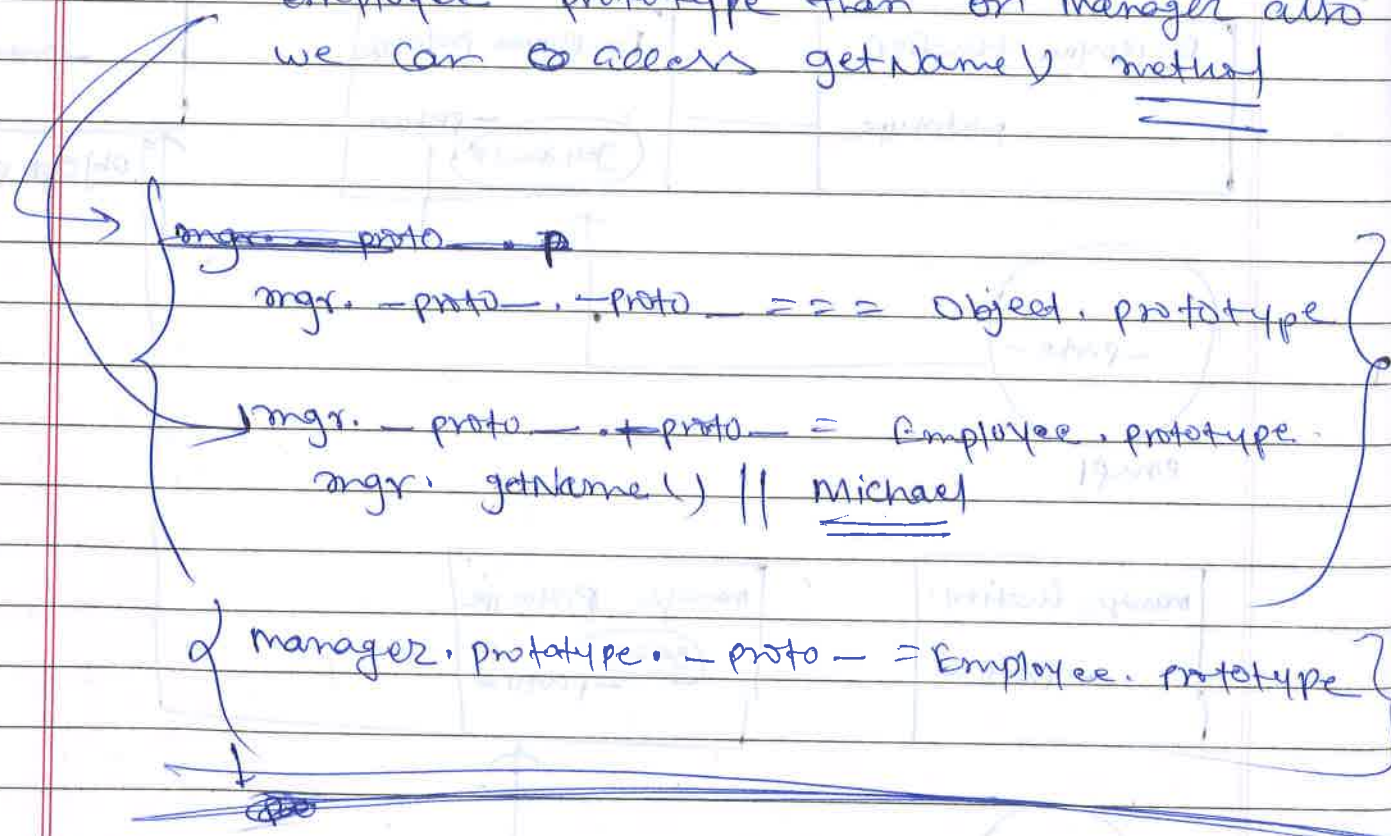 employee prototype than on manager also
we can access getName() method
mgr. __proto__. p
mgr. __proto__. __proto__ === Object. prototype
mgr. __proto__. __proto__ = Employee. prototype.
mgr. getName() || Michael
manager. prototype. __proto__ = Employee. prototype